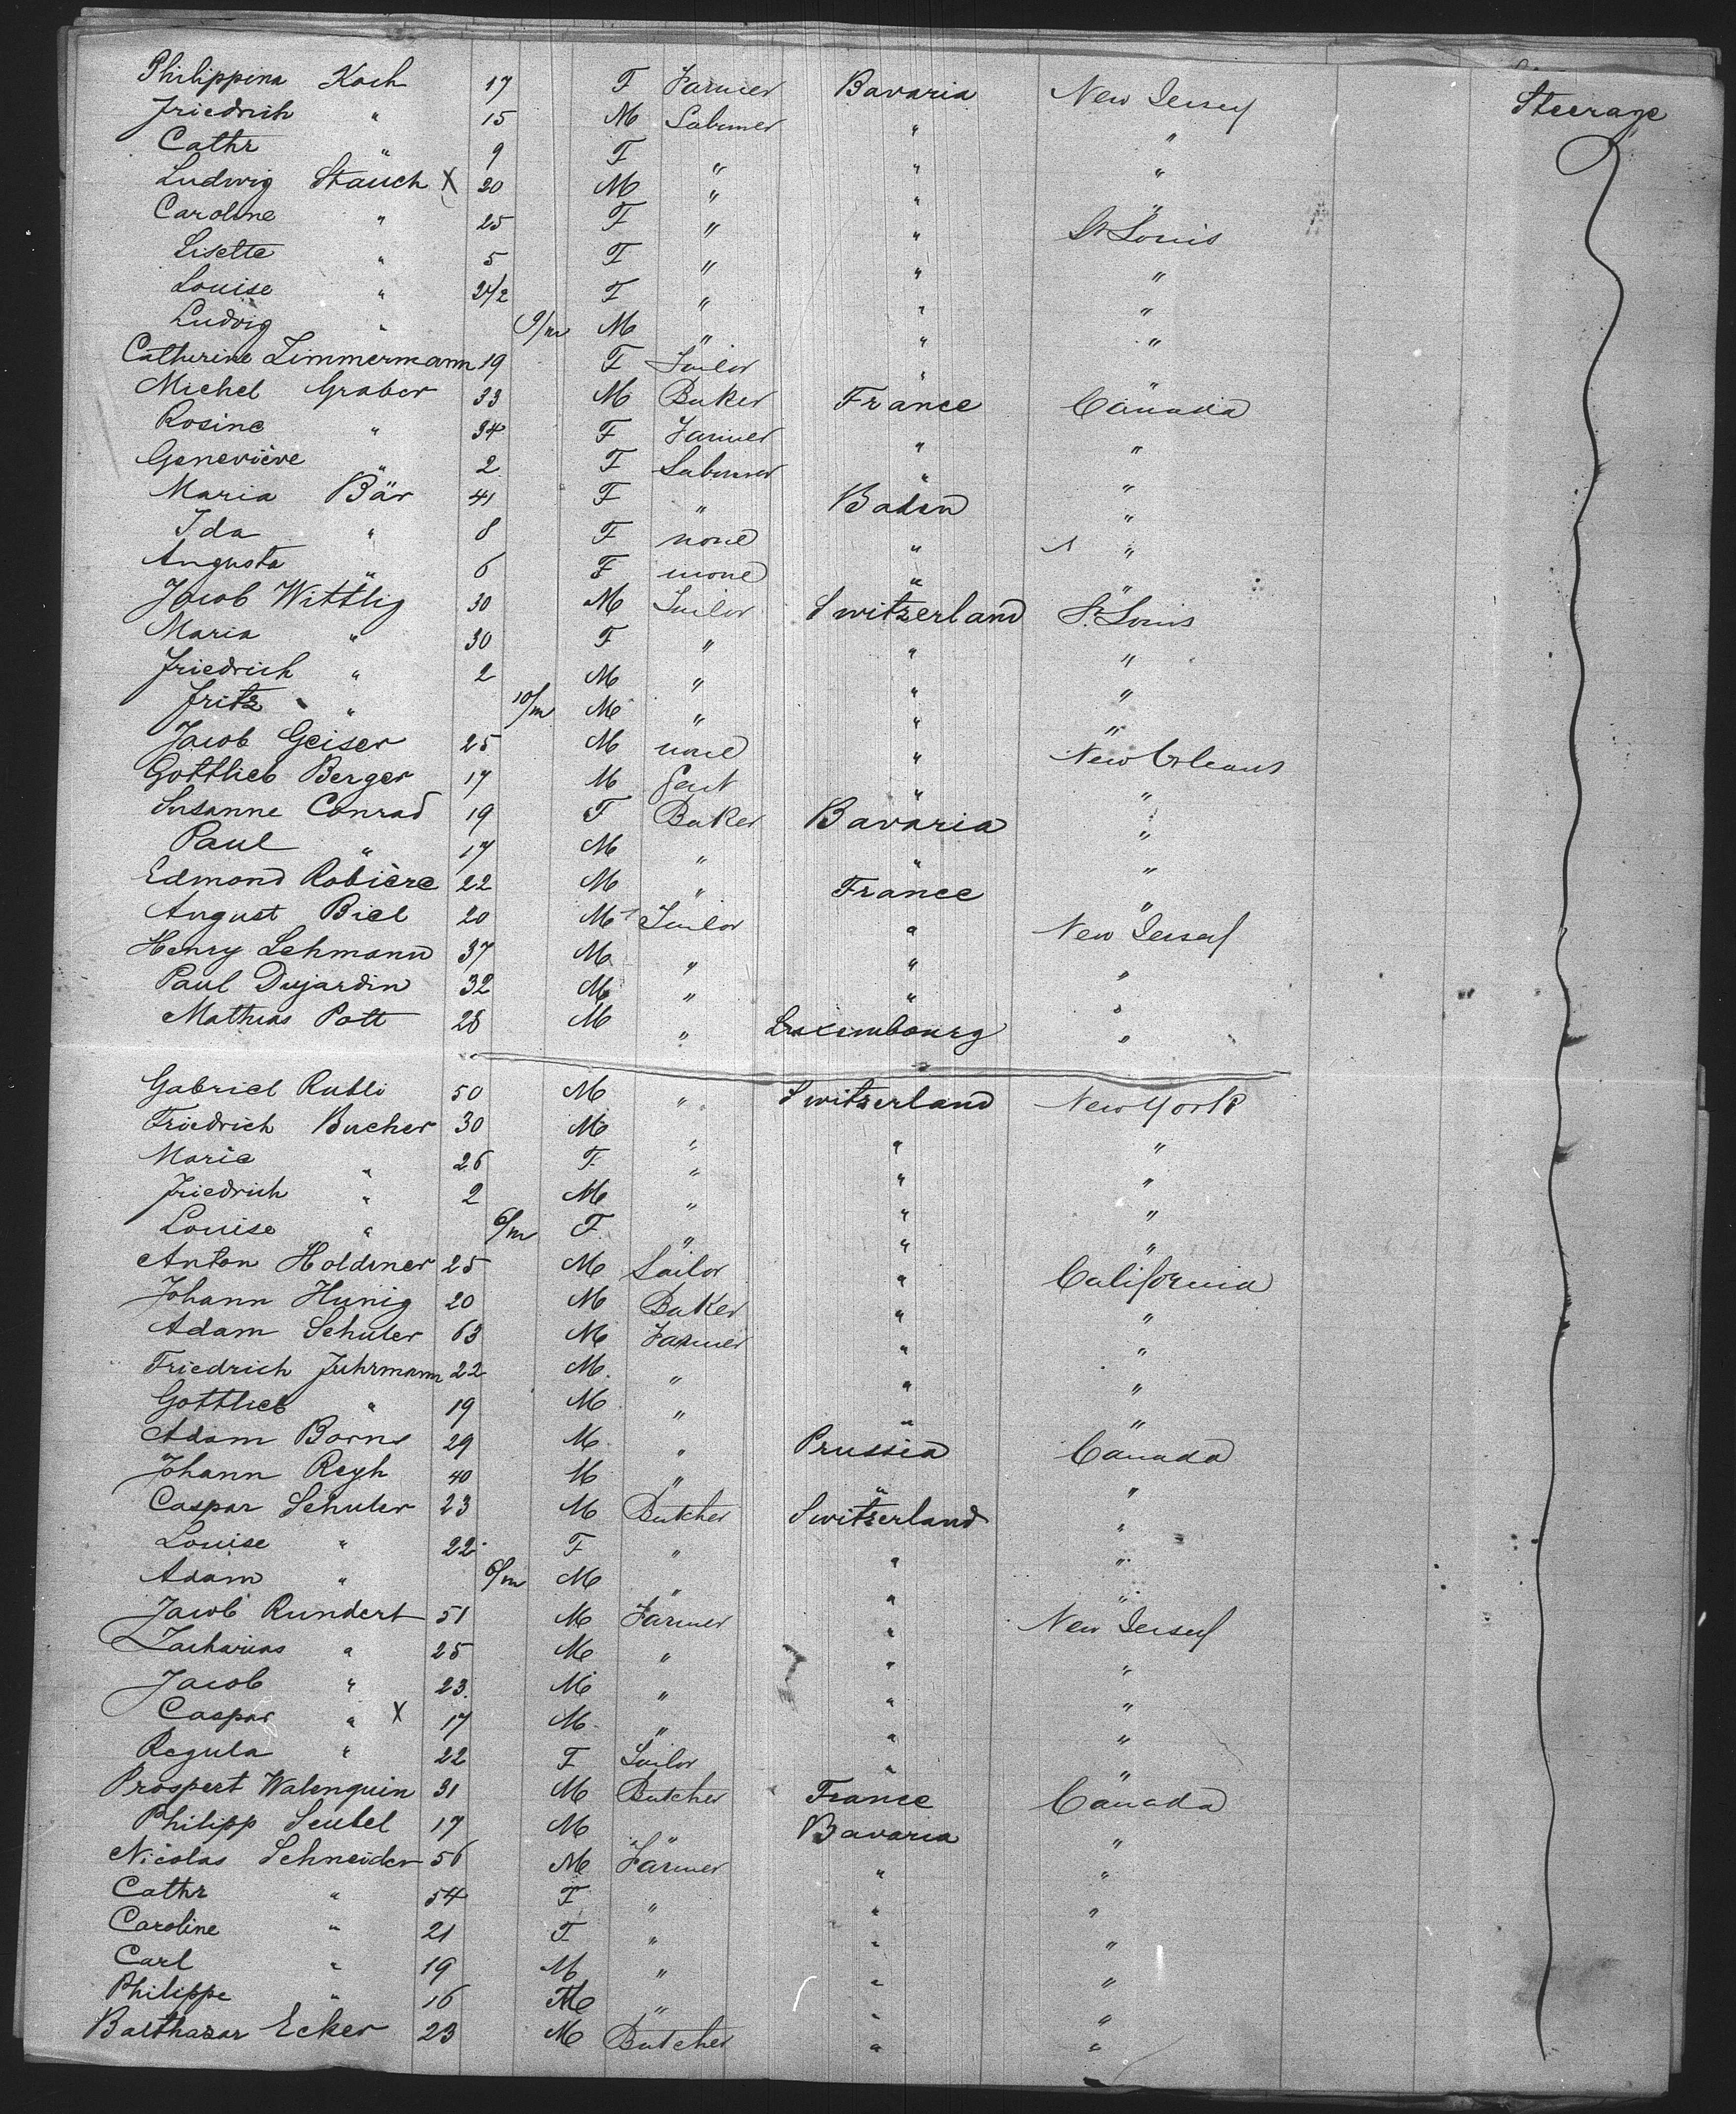 Philippina Koch 17 F Farmer Bavaria New Jersey Steerage
Friedrich " 15 M Labourer " "
Cathr " 9 F " " "
Ludwig Stauch X 20 M " " "
Caroline " 25 F " " St Louis
Lisette " 5 F " " "
Louise " 2 1/2 F " " "
Ludvig " 9/m M " " "
Catherine Zimmermann 19 F Tailor " "
Michel Graber 33 M Baker France Canada
Rosine " 34 F Farmer " "
Geneviève " 2 F Labourer " "
Maria Bär 41 F " Baden "
Ida " 8 F none " "
Augusta " 6 F none " "
Jacob Wittlig 30 M Tailor Switzerland St. Louis
Maria " 30 F " " "
Friedrich " 2 M " " "
Fritz " 10/m M " " "
Jacob Geiser 25 M none " New Orleans
Gottlieb Berger 17 M Gent " "
Susanne Conrad 19 F Baker Bavaria "
Paul " 17 M " " "
Edmond Robière 22 M " France "
August Biel 20 M Tailor " New Jersey
Henry Lehmann 37 M " " "
Paul Dujardin 32 M " " "
Mathias Pott 28 M " Luxembourg "
Gabriel Rubli 50 M " Switzerland New York
Friedrich Bucher 30 M " " "
Marie " 26 F " " "
Friedrich " 2 M " " "
Louise " 6/m F " " "
Anton Holdener 25 M Tailor " California
Johann Hunig 20 M Baker " "
Adam Schuler 63 M Farmer " "
Friedrich Fuhrmann 22 M " " "
Gottlieb " 19 M " " "
Adam Borns 29 M " Prussia Canada
Johann Regh 40 M " " "
Caspar Schuler 23 M Butcher Switzerland "
Louise " 22 F " " "
Adam " 6/m M " " "
Jacob Rundert 51 M Farmer " New Jersey
Zacharias " 25 M " " "
Jacob " 23 M " " "
Caspar " X 17 M " " "
Regula " 22 F Tailor " "
Prospert Walenquin 31 M Butcher France Canada
Philipp Seubel 17 M " Bavaria "
Nicolas Schneider 56 M Farmer " "
Cathr " 54 F " " "
Caroline " 21 F " " "
Carl " 19 M " " "
Philippe " 16 M " " "
Balthazar Ecker 23 M Butcher " "